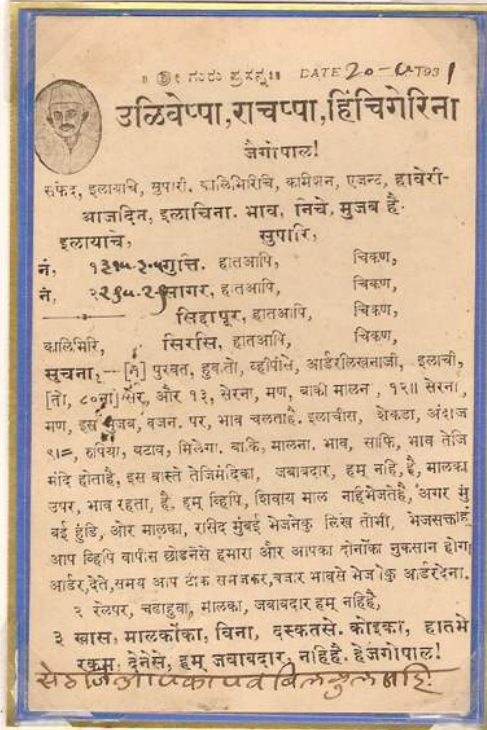 ॥ ಶ್ರೀ ಗುರು ಪ್ರಸನ್ನ ॥ DATE 20-4T931
उळिवेप्पा,राचप्पा,हिंचिगेरिना
जैगोपाल!
सफेद, इलायाचि, सुपारी. कालिमिरीचि, कमिशन, एजन्ट, हावेरी-
आजदिन, इलाचिना. भाव, निचे, मुजब है.
इलायाचे, सुपारि,
नं, गुत्ति. हातआपि, चिकण,
नं, सागर, हातआपि, चिकण,
सिद्दापूर, हातआपि, चिकण,
कालिमिरि, सिरसि, हातआपि, चिकण,
सूचना,--[१] पुरवत, हुबतो, व्हीपीसे, आर्डरलिखनाजी, इलाची,
[तो, ८०ना] सेर, और १३, सेरना, मण, बाकी मालन, १२॥ सेरना,
मण, इस मुजब, वजन. पर, भाव चलताहै. इलाचीस, शेकडा, अंदाज
९।=, रुपिया, वटाव, मिलेगा. बाकि, मालना. भाव, साफि, भाव तेजि
मांदे होताहै, इस वास्ते तेजिमंदिका, जबाबदार, हम् नहि, है, मालका
उपर, भाव रहता, है, हम् व्हिपि, शिवाय माल नहिभेजतेहै, अगर मुं
बई हुंडि, ओर मालका, रसिद मुंबई भेजनेकु लिख तोभी, भेजसक्ताहुं
आप व्हिपि वापीस छोडनेसे हमारा और आपका दोनोंका नुकसान होगा
आर्डर,देते,समय आप ठीक समजकर,बजार भावसे भेजनेकु आर्डरदेना.
२ रेलपर, चढाहुवा, मालका, जबाबदार हम् नहिहै,
३ खास, मालकोंका, विना, दस्कतसे. कोइका, हातमे
रकम, देनेसे, हम् जबाबदार, नहिहै. हेजंगोपाल!
सेठजि आपका पत्र बिलकुल नहि